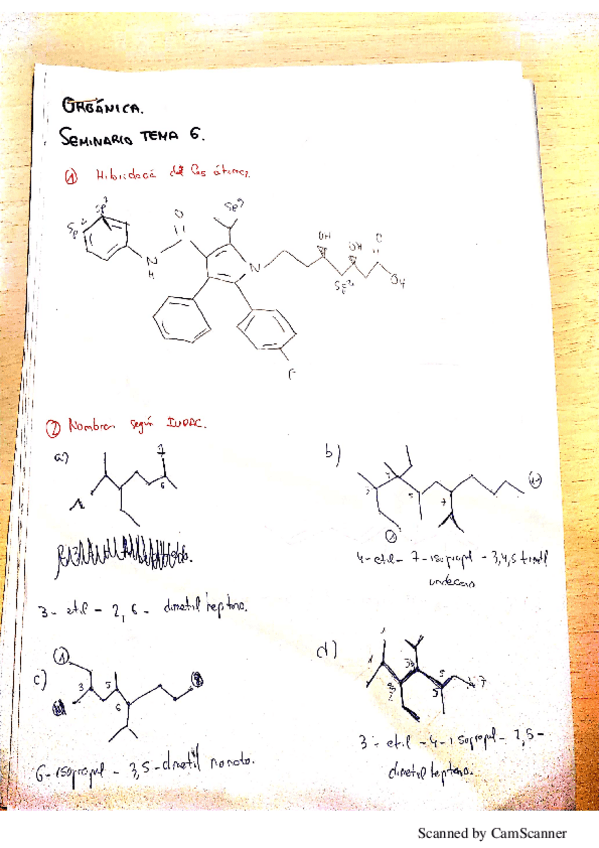 ORGÁNICA.
SEMINARIO TEMA 6.
① Hibridacá de los átomos.
sp²
sp²
O
N
H
sp³
N
OH
OH
O
OH
sp³
F
② Nombrar según IUPAC.
a)
7
6
1
3-etil-2,6-dimetil heptano.
b)
3
5
7
11
1
4-etil-7-isopropil-3,4,5 trimetil
undecano
c)
1
3
5
6
9
6-isopropil-3,5-dimetil nonano.
d)
1
5
7
3-etil-4-isopropil-2,5-
dimetil heptano.
Scanned by CamScanner